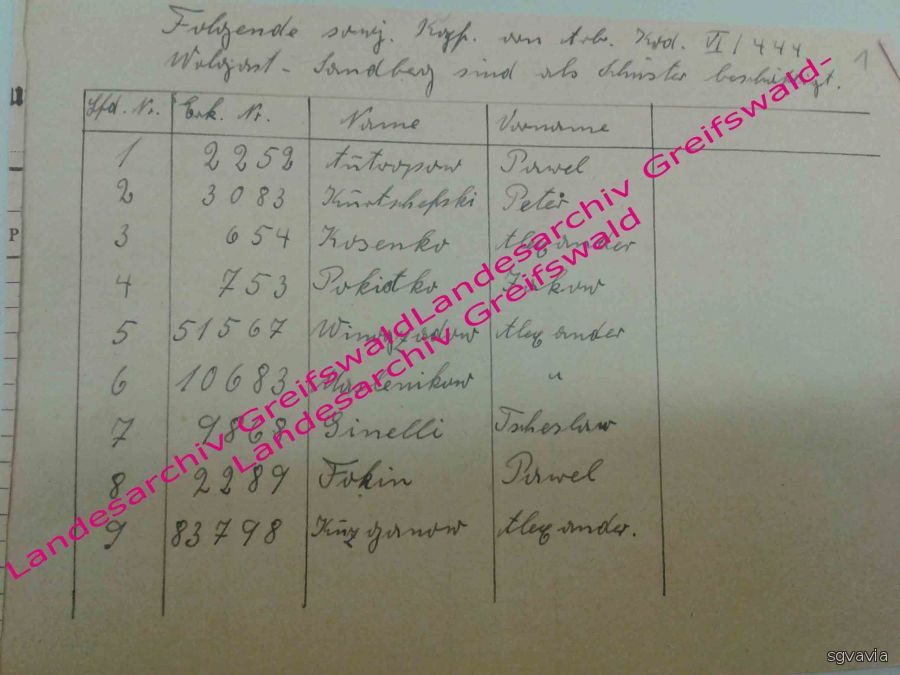 Folgende sowj. Kgf. von Arb. Kdo. VI / 444 1
Wolgast - Sandberg sind als Schuster beschäftigt.
Lfd. Nr. Erk. Nr. Name Vorname
1 2252 Autoopow Pawel
2 3083 Kurtschefski Peter
3 654 Kosenko Alexander
4 753 Pokidko Jakow
5 51567 Winogradow Alexander
6 10683 "
7 9868 Ginelli Tscheslaw
8 2289 Fokin Pawel
9 83798 Kurganow Alexander.
Landesarchiv GreifswaldLandesarchiv Greifswald-
Landesarchiv Greifswald
P
sgvavia